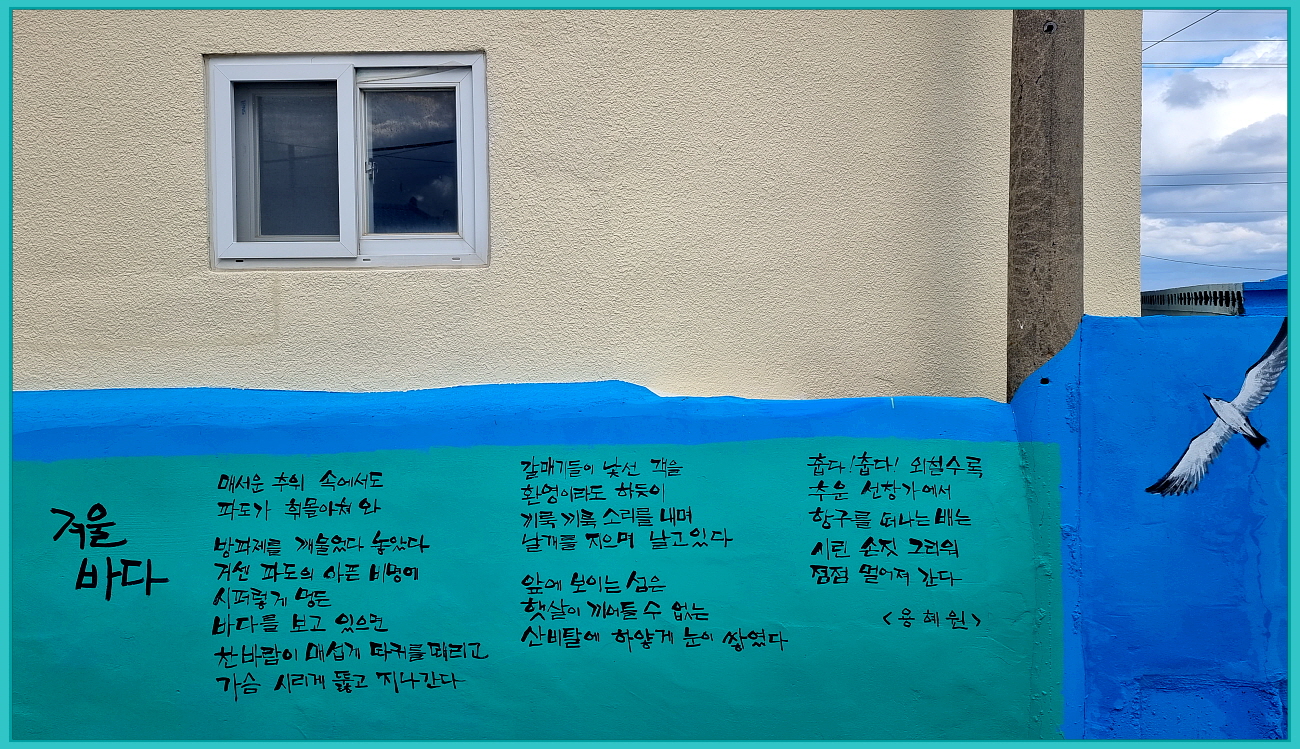 겨울
바다
매서운 추위 속에서도
파도가 휘몰아쳐 와
방파제를 깨물었다 놓았다
거센 파도의 아픈 비명에
시퍼렇게 멍든
바다를 보고 있으면
찬바람이 매섭게 따귀를 때리고
가슴 시리게 뚫고 지나간다
갈매기들이 낯선 객을
환영이라도 하듯이
끼룩 끼룩 소리를 내며
날개를 저으며 날고있다
앞에 보이는 섬은
햇살이 끼어들 수 없는
산비탈에 하얗게 눈이 쌓였다
춥다! 춥다! 외칠수록
추운 선창가에서
항구를 떠나는 배는
시린 손짓 그리워
점점 멀어져 간다
<용혜원>